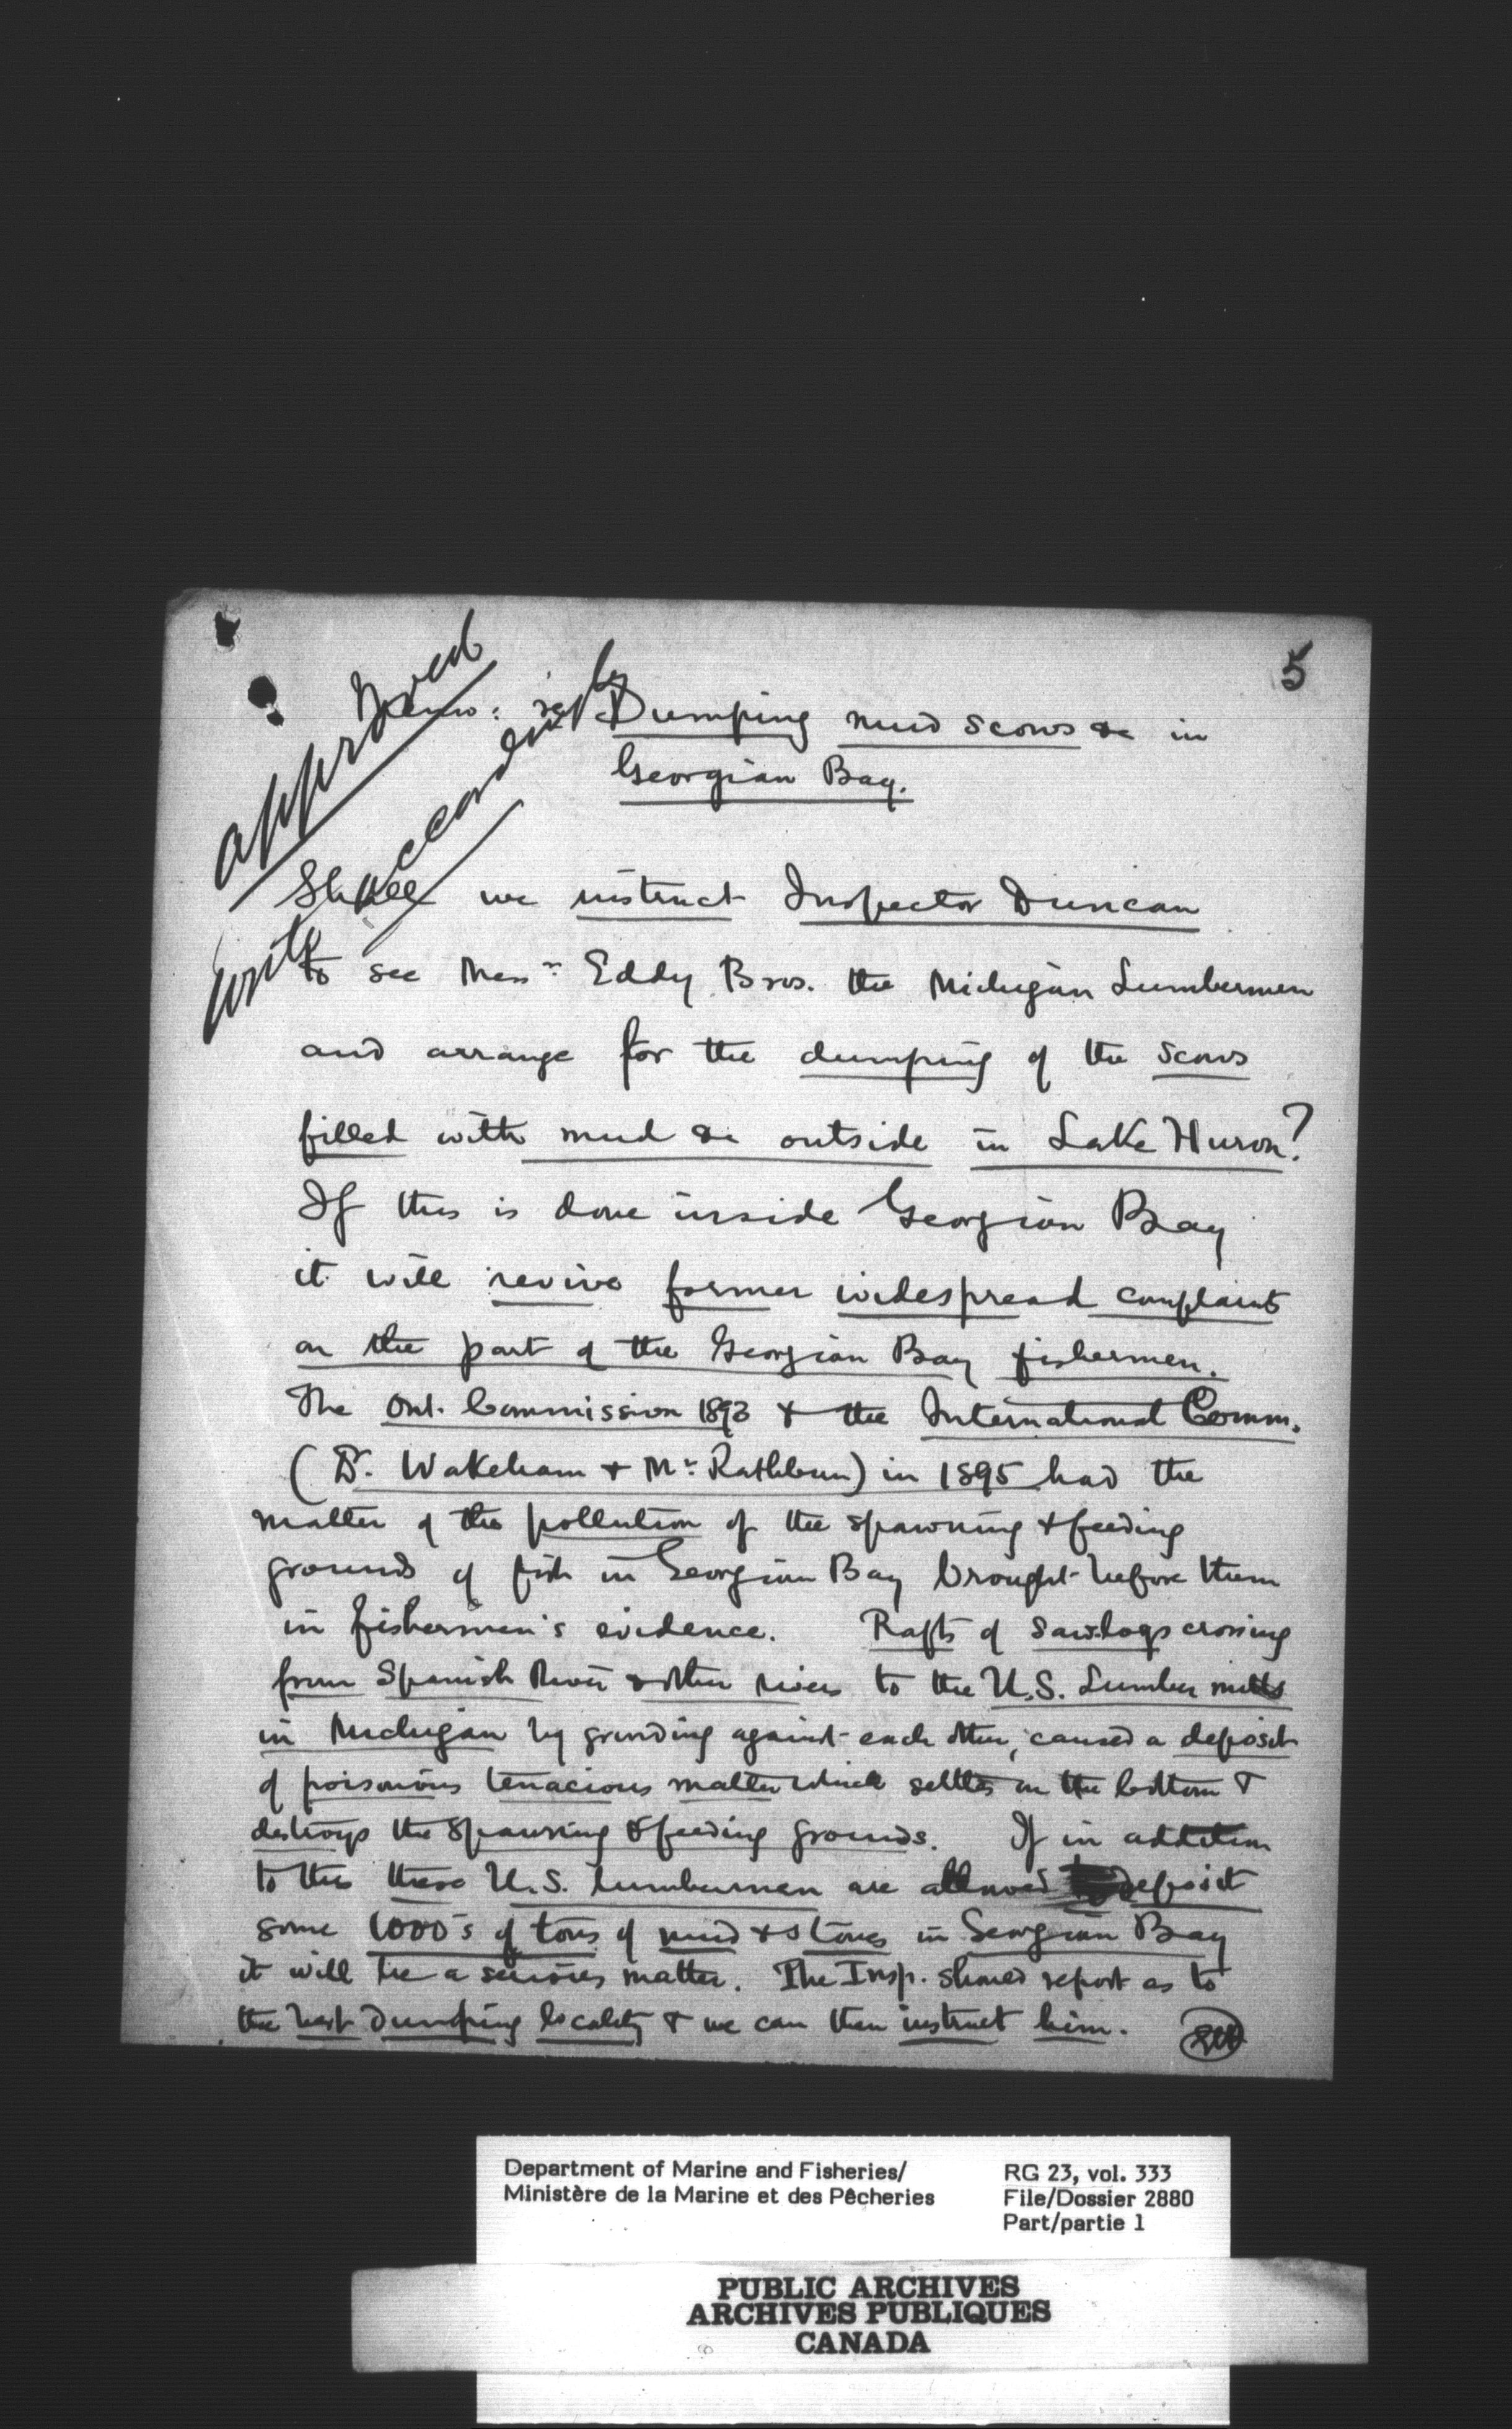 5
approved
write accordingly
Memo: re Dumping mud scows &c in
Georgian Bay.
Shall we instruct Inspector Duncan
to see Messrs Eddy Bros. the Michigan Lumbermen
and arrange for the dumping of the scows
filled with mud &c outside in Lake Huron?
If this is done inside Georgian Bay
it will revive former widespread complaints
on the part of the Georgian Bay fishermen.
The Ont. Commission 1893 & the International Comm.
(Dr. Wakeham & Mr. Rathbun) in 1895 had the
matter of the pollution of the spawning & feeding
grounds of fish in Georgian Bay brought before them
in fishermen's evidence. Rafts of Sawlogs crossing
from Spanish River & other rivers to the U.S. Lumber mills
in Michigan by grinding against each other, caused a deposit
of poisonous tenacious matter which settles on the bottom &
destroys the spawning & feeding grounds. If in addition
to this these U.S. lumbermen are allowed to deposit
some 1000's of tons of mud & stones in Georgian Bay
it will be a serious matter. The Insp. should report as to
the best dumping locality & we can then instruct him.
Department of Marine and Fisheries/
Ministère de la Marine et des Pêcheries
RG 23, vol. 333
File/Dossier 2880
Part/partie 1
PUBLIC ARCHIVES
ARCHIVES PUBLIQUES
CANADA